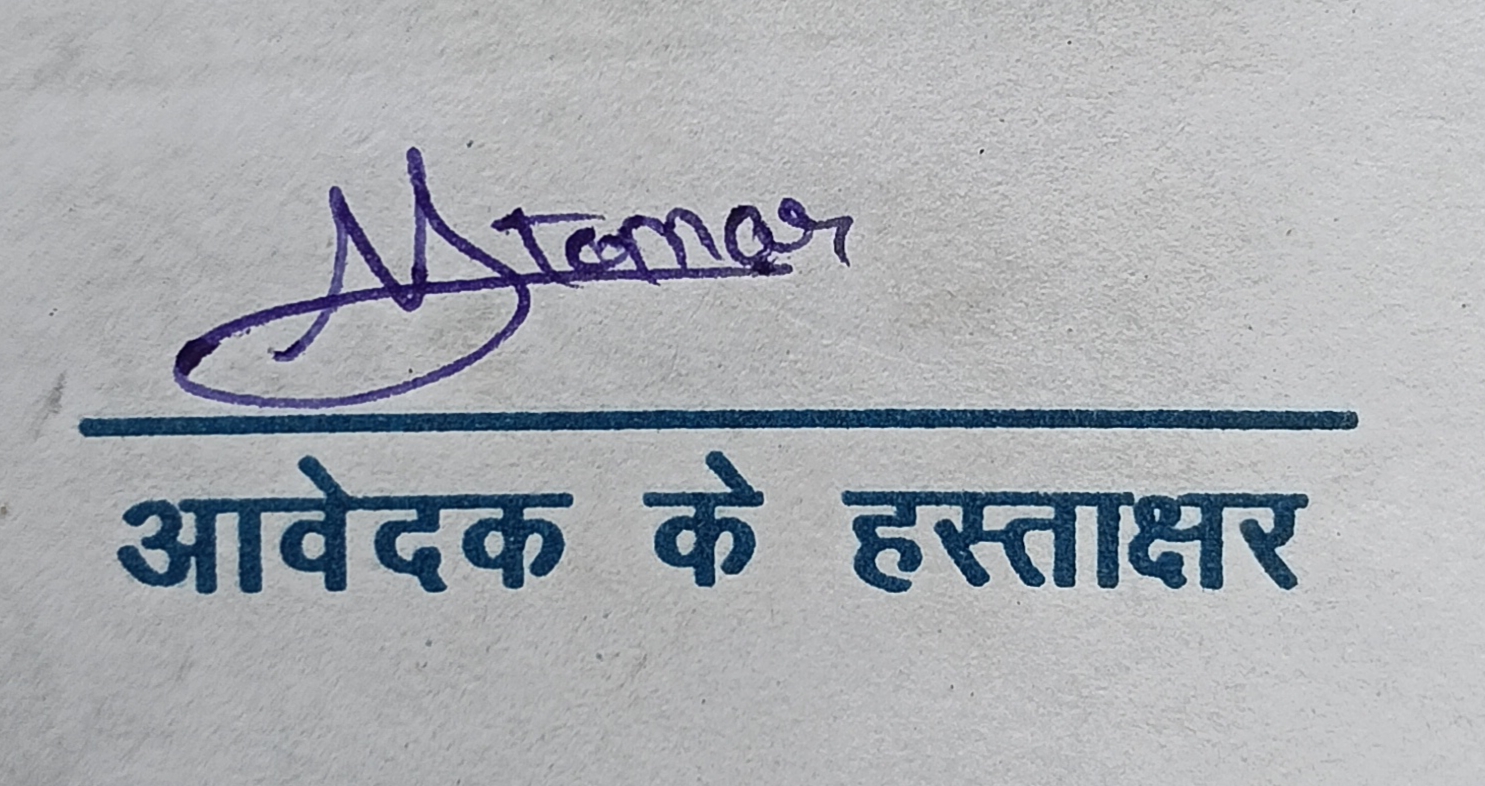 M Tomar
आवेदक के हस्ताक्षर